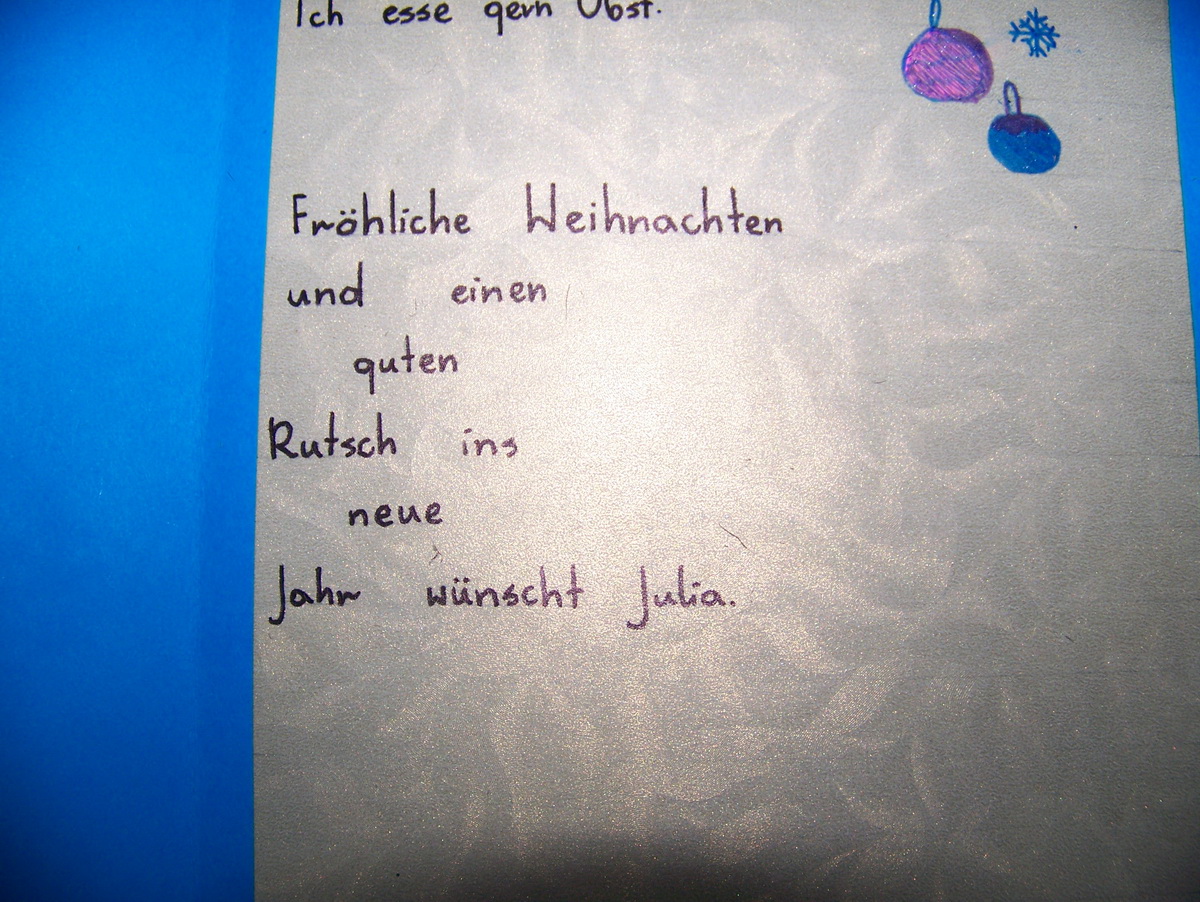 Ich esse gern Obst.
Fröhliche Weihnachten
und einen
guten
Rutsch ins
neue
Jahr wünscht Julia.